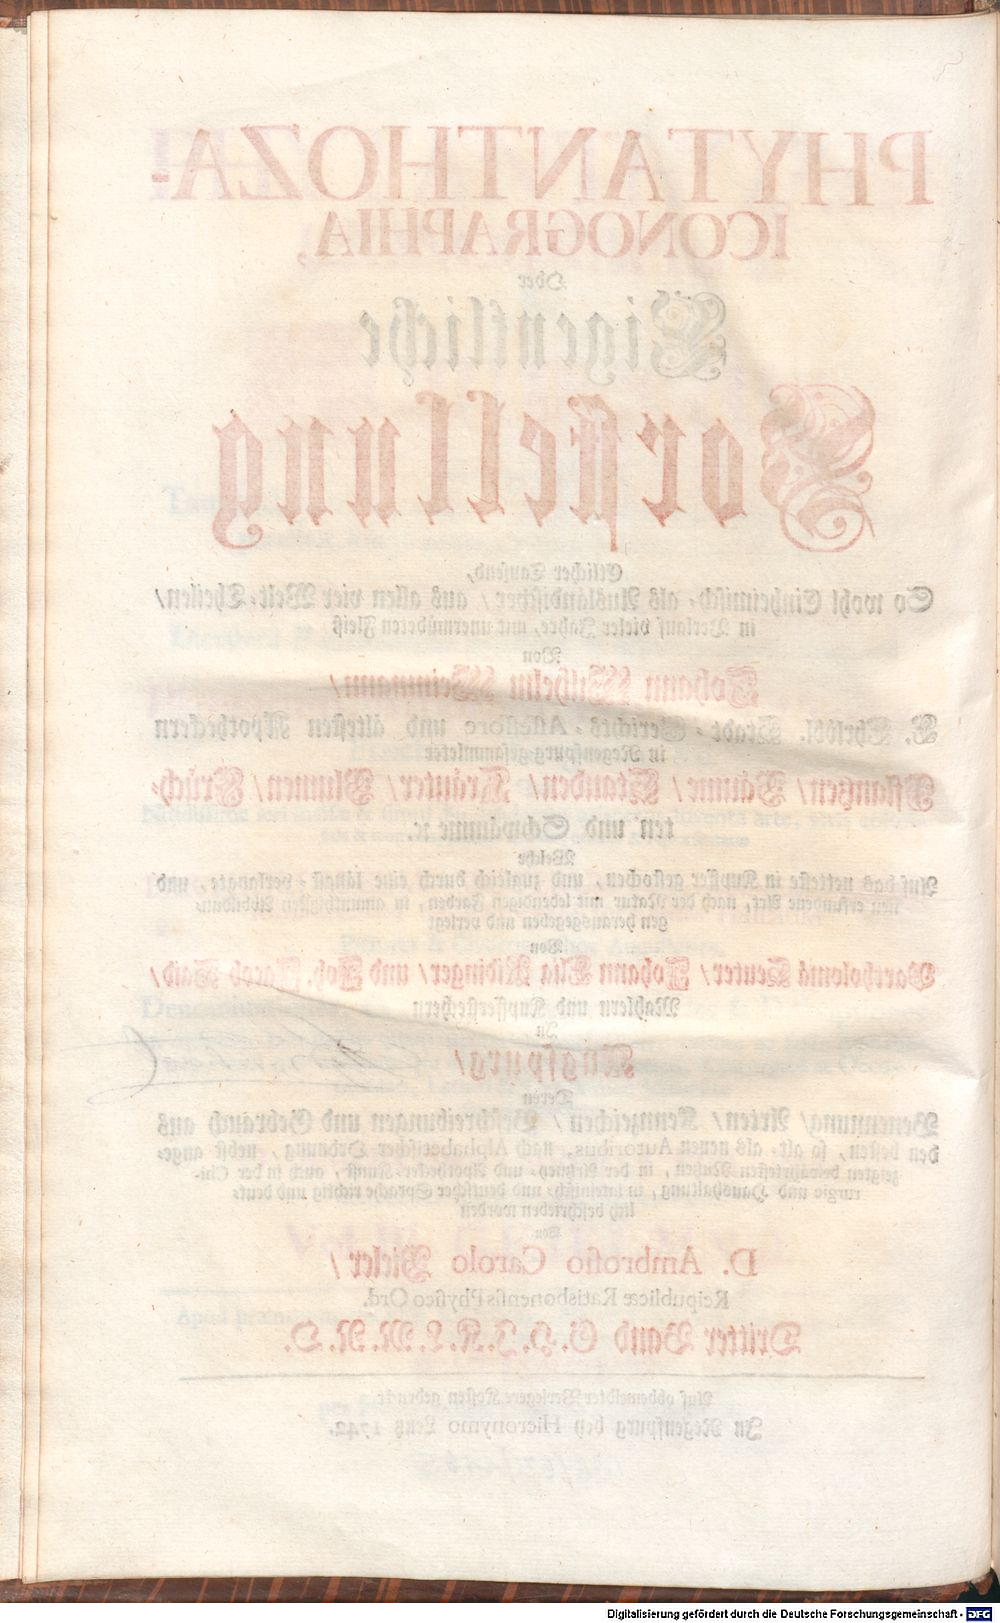 PHYTANTHOZA-
ICONOGRAPHIA,
Oder
Eigentliche
Vorstellung
Etlicher Tausend,
So wohl Einheimisch- als Ausländischer / aus allen vier Welt-Theilen /
in Verlauf vieler Jahre, mit unermüdeten Fleiß
Von
Johann Wilhelm Weinmann /
E. Ehrlöbl. Stadt-Gerichts-Assessore und ältesten Apotheckern
in Regenspurg gesammleter
Pflantzen / Bäume / Stauden / Kräuter / Blumen / Früch-
ten und Schwämme ꝛc.
Welche
Auf das netteste in Kupffer gestochen, und zugleich durch eine längst-verlangte, und
neu erfundene Art, nach der Natur mit lebendigen Farben, in anmuthigsten Abbildun-
gen herausgegeben und verlegt
Von
Bartholomä Seuter / Johann Elia Ridinger / und Joh. Jacob Haid /
Mahlern und Kupfferstechern
In
Augspurg /
Deren
Benennung / Arten / Kennzeichen / Beschreibungen und Gebrauch aus
den besten, so alt- als neuen Autoribus, nach Alphabetischer Ordnung, nebst ange-
zeigten bewährtesten Nutzen, in der Artzney- und Apothecker-Kunst, auch in der Chi-
rurgie und Haushaltung, in lateinisch- und deutscher Sprache richtig und deut-
lich beschrieben worden
Von
D. Ambrosio Carolo Bieler /
Reipublicæ Ratisbonensis Physico Ord.
Dritter Band
Auf obbemeldter Verlegere Kosten gedruckt
In Regenspurg bey Hieronymo Lentz 1742.
Digitalisierung gefördert durch die Deutsche Forschungsgemeinschaft - DFG